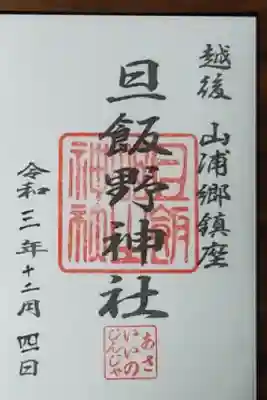 越後 山浦郷鎮座
旦飯野神社
令和三年十二月四日
あさ
いいの
じんじゃ